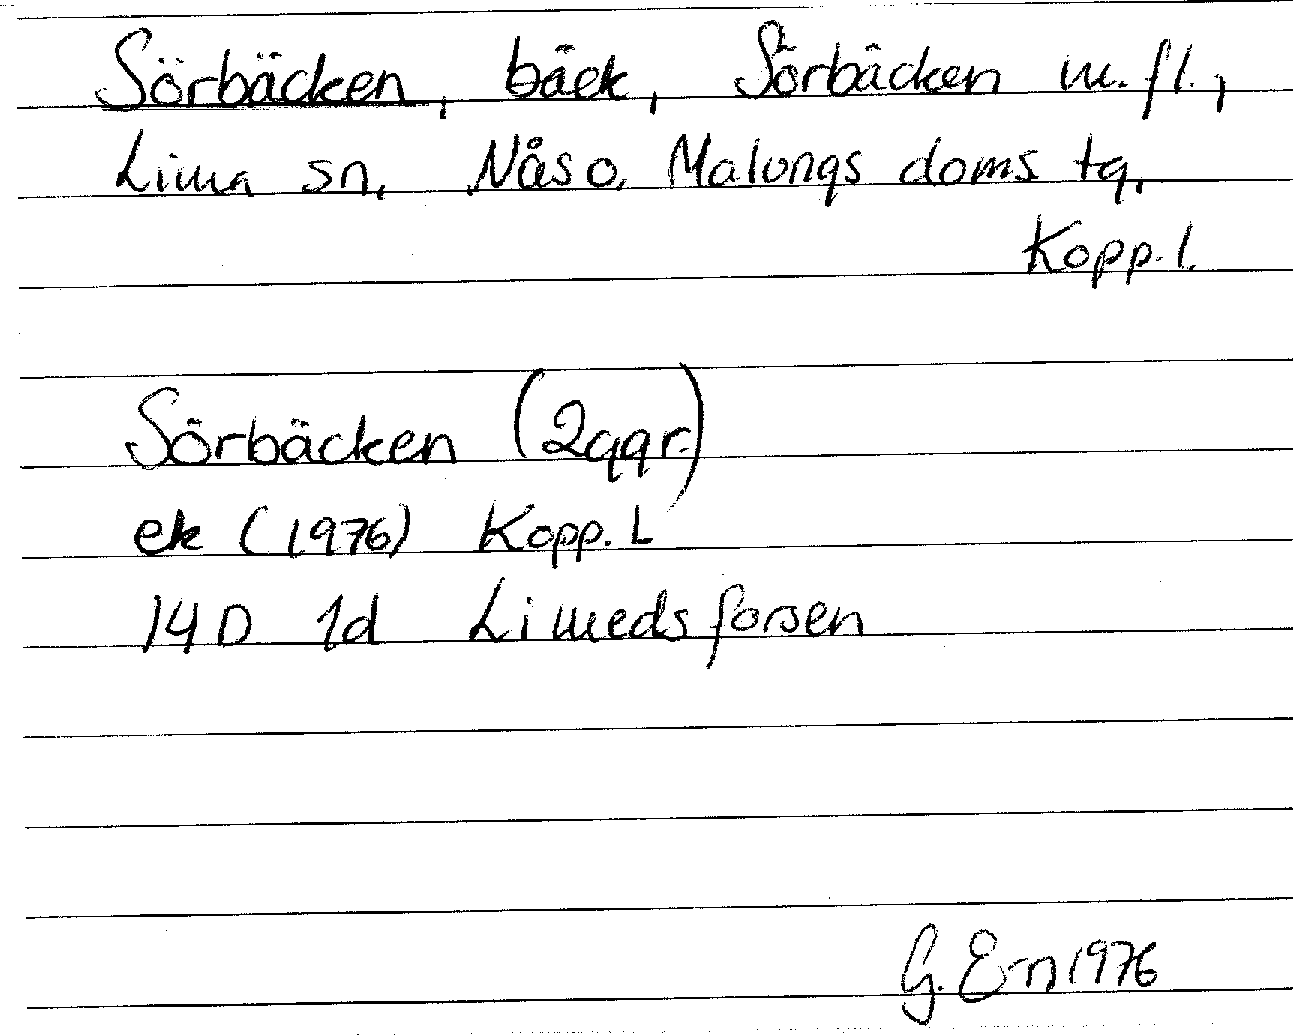 Sörbäcken, bäck, Sörbäcken m.fl.,
Lima sn, Nås o. Malungs doms tg,
Kopp. l.
Sörbäcken (2ggr.)
ek (1976) Kopp. L
14D 1d Limedsforsen
G. Ern 1976